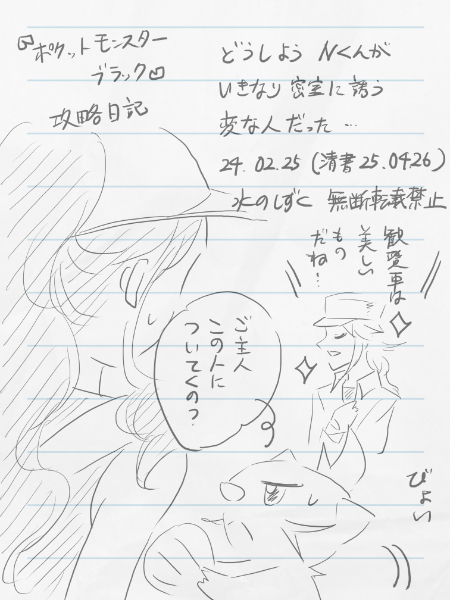 『ポケットモンスター
ブラック』
攻略日記
どうしよう Nくんが
いきなり密室に誘う
変な人だった…
24.02.25(清書25.04.26)
水のしずく 無断転載禁止
観覧車は
美しい
もの
だね…
ご主人
この人に
ついてくの?
ぴょい